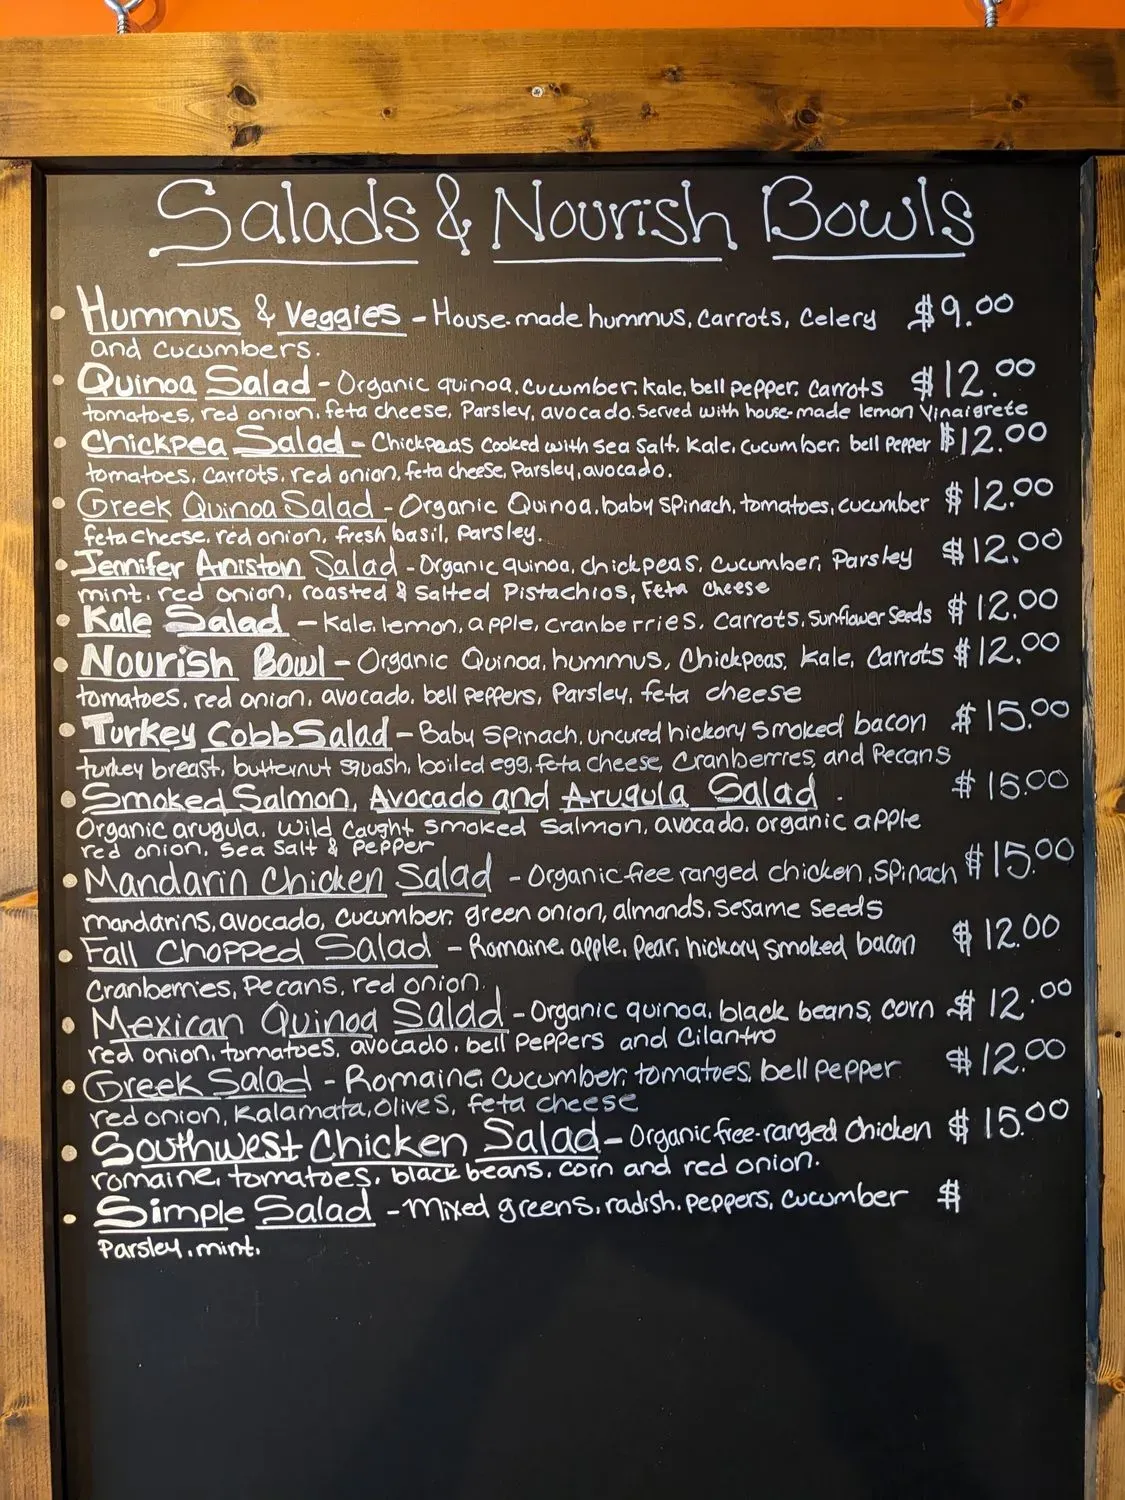 Salads & Nourish Bowls
• Hummus & Veggies - House-made hummus, carrots, Celery $9.00
and cucumbers.
• Quinoa Salad - Organic quinoa, cucumber, kale, bell pepper, carrots $12.00
tomatoes, red onion, feta cheese, Parsley, avocado. Served with house-made lemon Vinaigrete
• Chickpea Salad - Chickpeas cooked with sea salt, Kale, cucumber, bell Pepper $12.00
tomatoes, carrots, red onion, feta cheese, Parsley, avocado.
• Greek Quinoa Salad - Organic Quinoa, baby spinach, tomatoes, cucumber $12.00
feta cheese, red onion, fresh basil, Parsley.
• Jennifer Aniston Salad - Organic quinoa, chickpeas, cucumber, Parsley $12.00
mint, red onion, roasted & salted Pistachios, Feta cheese
• Kale Salad - Kale, lemon, apple, cranberries, carrots, sunflower seeds $12.00
• Nourish Bowl - Organic Quinoa, hummus, Chickpeas, Kale, Carrots $12.00
tomatoes, red onion, avocado, bell peppers, Parsley, feta cheese
• Turkey Cobb Salad - Baby spinach, uncured hickory smoked bacon $15.00
turkey breast, butternut squash, boiled egg, feta cheese, Cranberrries, and Pecans
• Smoked Salmon, Avocado and Arugula Salad . $15.00
Organic arugula, wild caught smoked salmon, avocado, organic apple
red onion, sea salt & pepper
• Mandarin Chicken Salad - Organic free ranged chicken, spinach $15.00
mandarins, avocado, cucumber, green onion, almonds, sesame seeds
• Fall Chopped Salad - Romaine, apple, pear, hickory smoked bacon $12.00
Cranberries, Pecans, red onion.
• Mexican Quinoa Salad - Organic quinoa, black beans, corn $12.00
red onion, tomatoes, avocado, bell peppers and Cilantro
• Greek Salad - Romaine, cucumber, tomatoes, bell pepper $12.00
red onion, Kalamata, Olives, feta cheese
• Southwest Chicken Salad - Organic free-ranged Chicken $15.00
romaine, tomatoes, black beans, corn and red onion.
• Simple Salad - Mixed greens, radish, peppers, cucumber $
Parsley, mint.